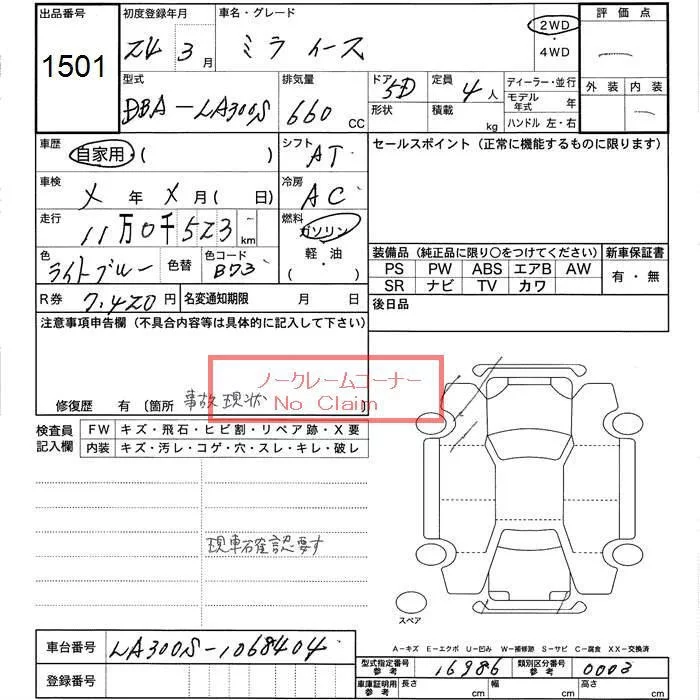 出品番号 初度登録年月 車名・グレード 2WD 評価点
1501 24 3月 ミライース ・4WD
型式 排気量 ドア 5D 定員 4人 ディーラー・並行 外装 内装
DBA-LA300S 660 CC 形状 積載 kg モデル年式 年
ハンドル 左・右
車歴 自家用・( ) シフト AT セールスポイント (正常に機能するものに限ります)
車検 X年 X月( 日) 冷房 AC
走行 11万0千523 km 燃料 ガソリン
軽・油
( )
色 ライトブルー 色替 色コード B73
装備品 (純正品に限り○をつけてください) 新車保証書
PS PW ABS エアB AW 有・無
SR ナビ TV カワ
R券 7,420円 名変通知期限 月 日 後日品
注意事項申告欄 (不具合内容等は具体的に記入して下さい)
ノークレームコーナー
No Claim
修復歴 有 〔箇所 事故現状 〕
検査員記入欄 FW キズ・飛石・ヒビ割・リペア跡・X要
内装 キズ・汚レ・コゲ・穴・スレ・キレ・破レ
現車確認要す
スペア
A-キズ E-エクボ U-凹み W-補修跡 S-サビ C-腐食 XX-交換済
車台番号 LA300S-1068404
型式指定番号 参考 16986 類別区分番号 参考 0003
登録番号 車庫証明用 参考 長さ cm 幅 cm 高さ cm